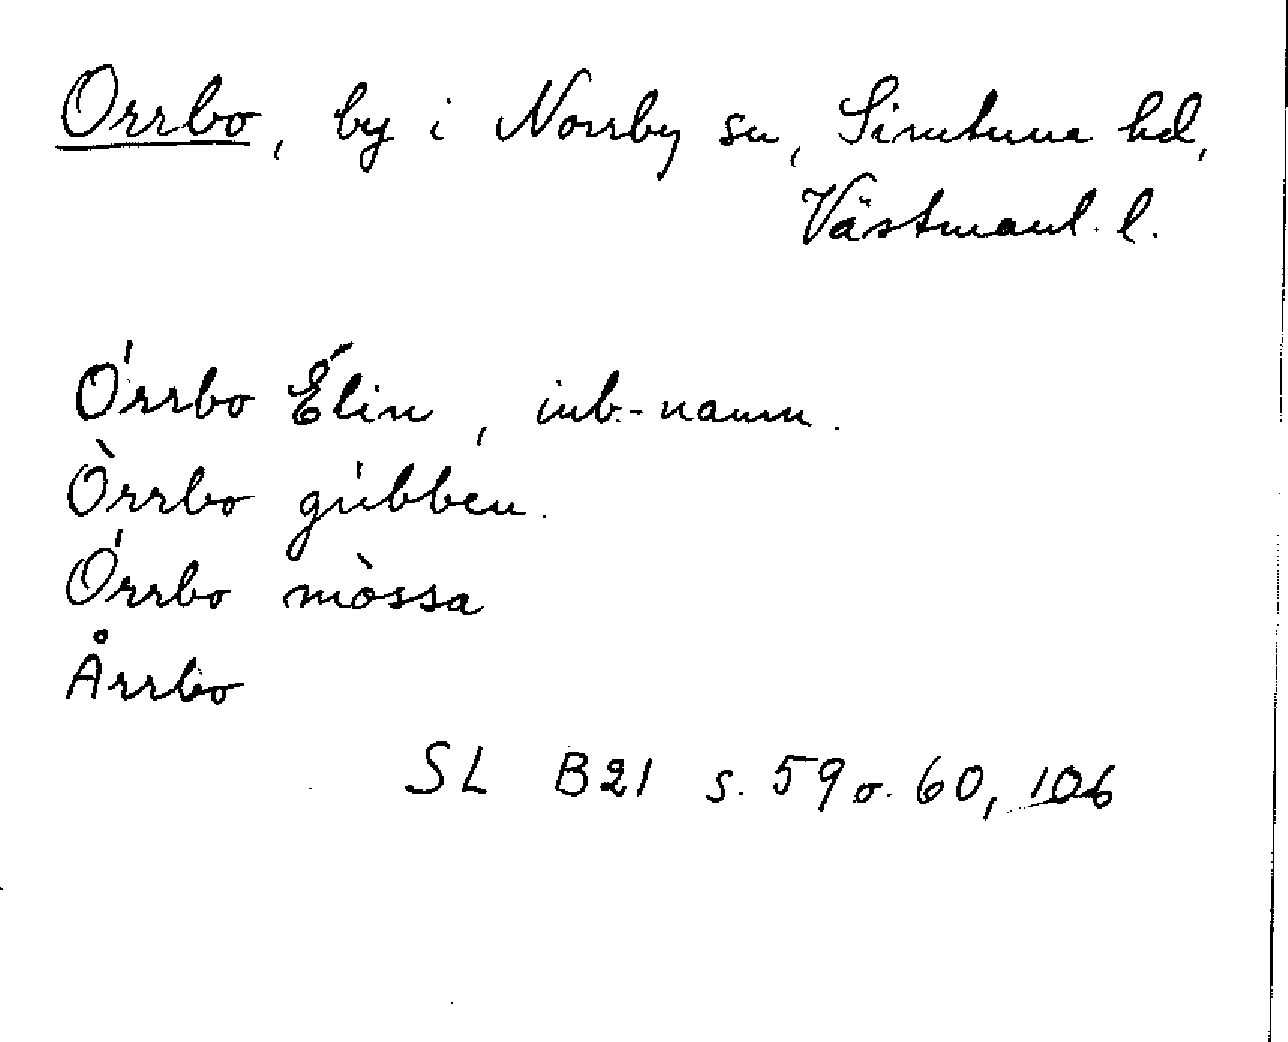 Orrbo, by i Norrby sn, Simtuna hd,
Västmanl. l.
Órrbo Élin, inb.-namn.
Òrrbo gúbben.
Órrbo mòssa
Årrbo
SL B21 s. 59 o. 60, 106